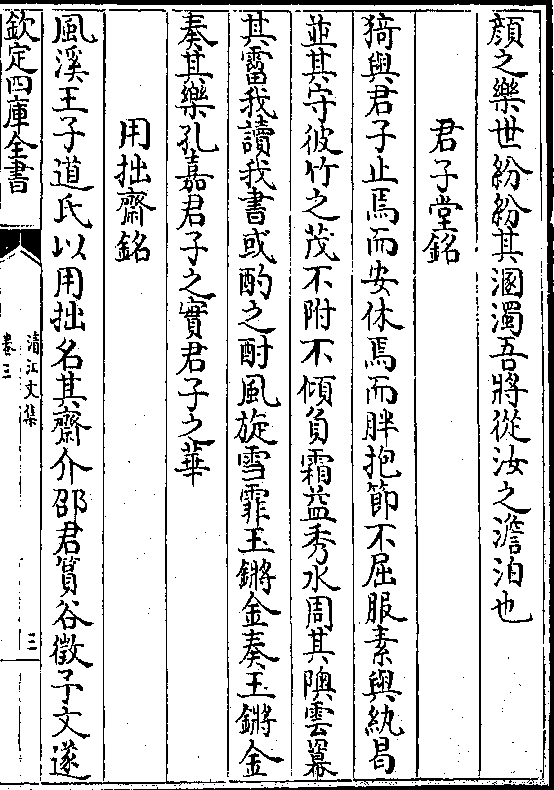 顔之樂世紛紛其溷濁吾將從汝之澹泊也
君子堂銘
猗與君子止焉而安休焉而胖抱節不屈服素與紈曷
並其守彼竹之茂不附不傾負霜益秀水周其隩雲冪
其霤我讀我書或酌之酎風旋雪霏玉鏘金奏玉鏘金
奏其樂孔嘉君子之實君子之華
用拙齋銘
風溪王子道氏以用拙名其齋介邵君篔谷徵予文遂
欽定四庫全書
清江文集
卷三
三